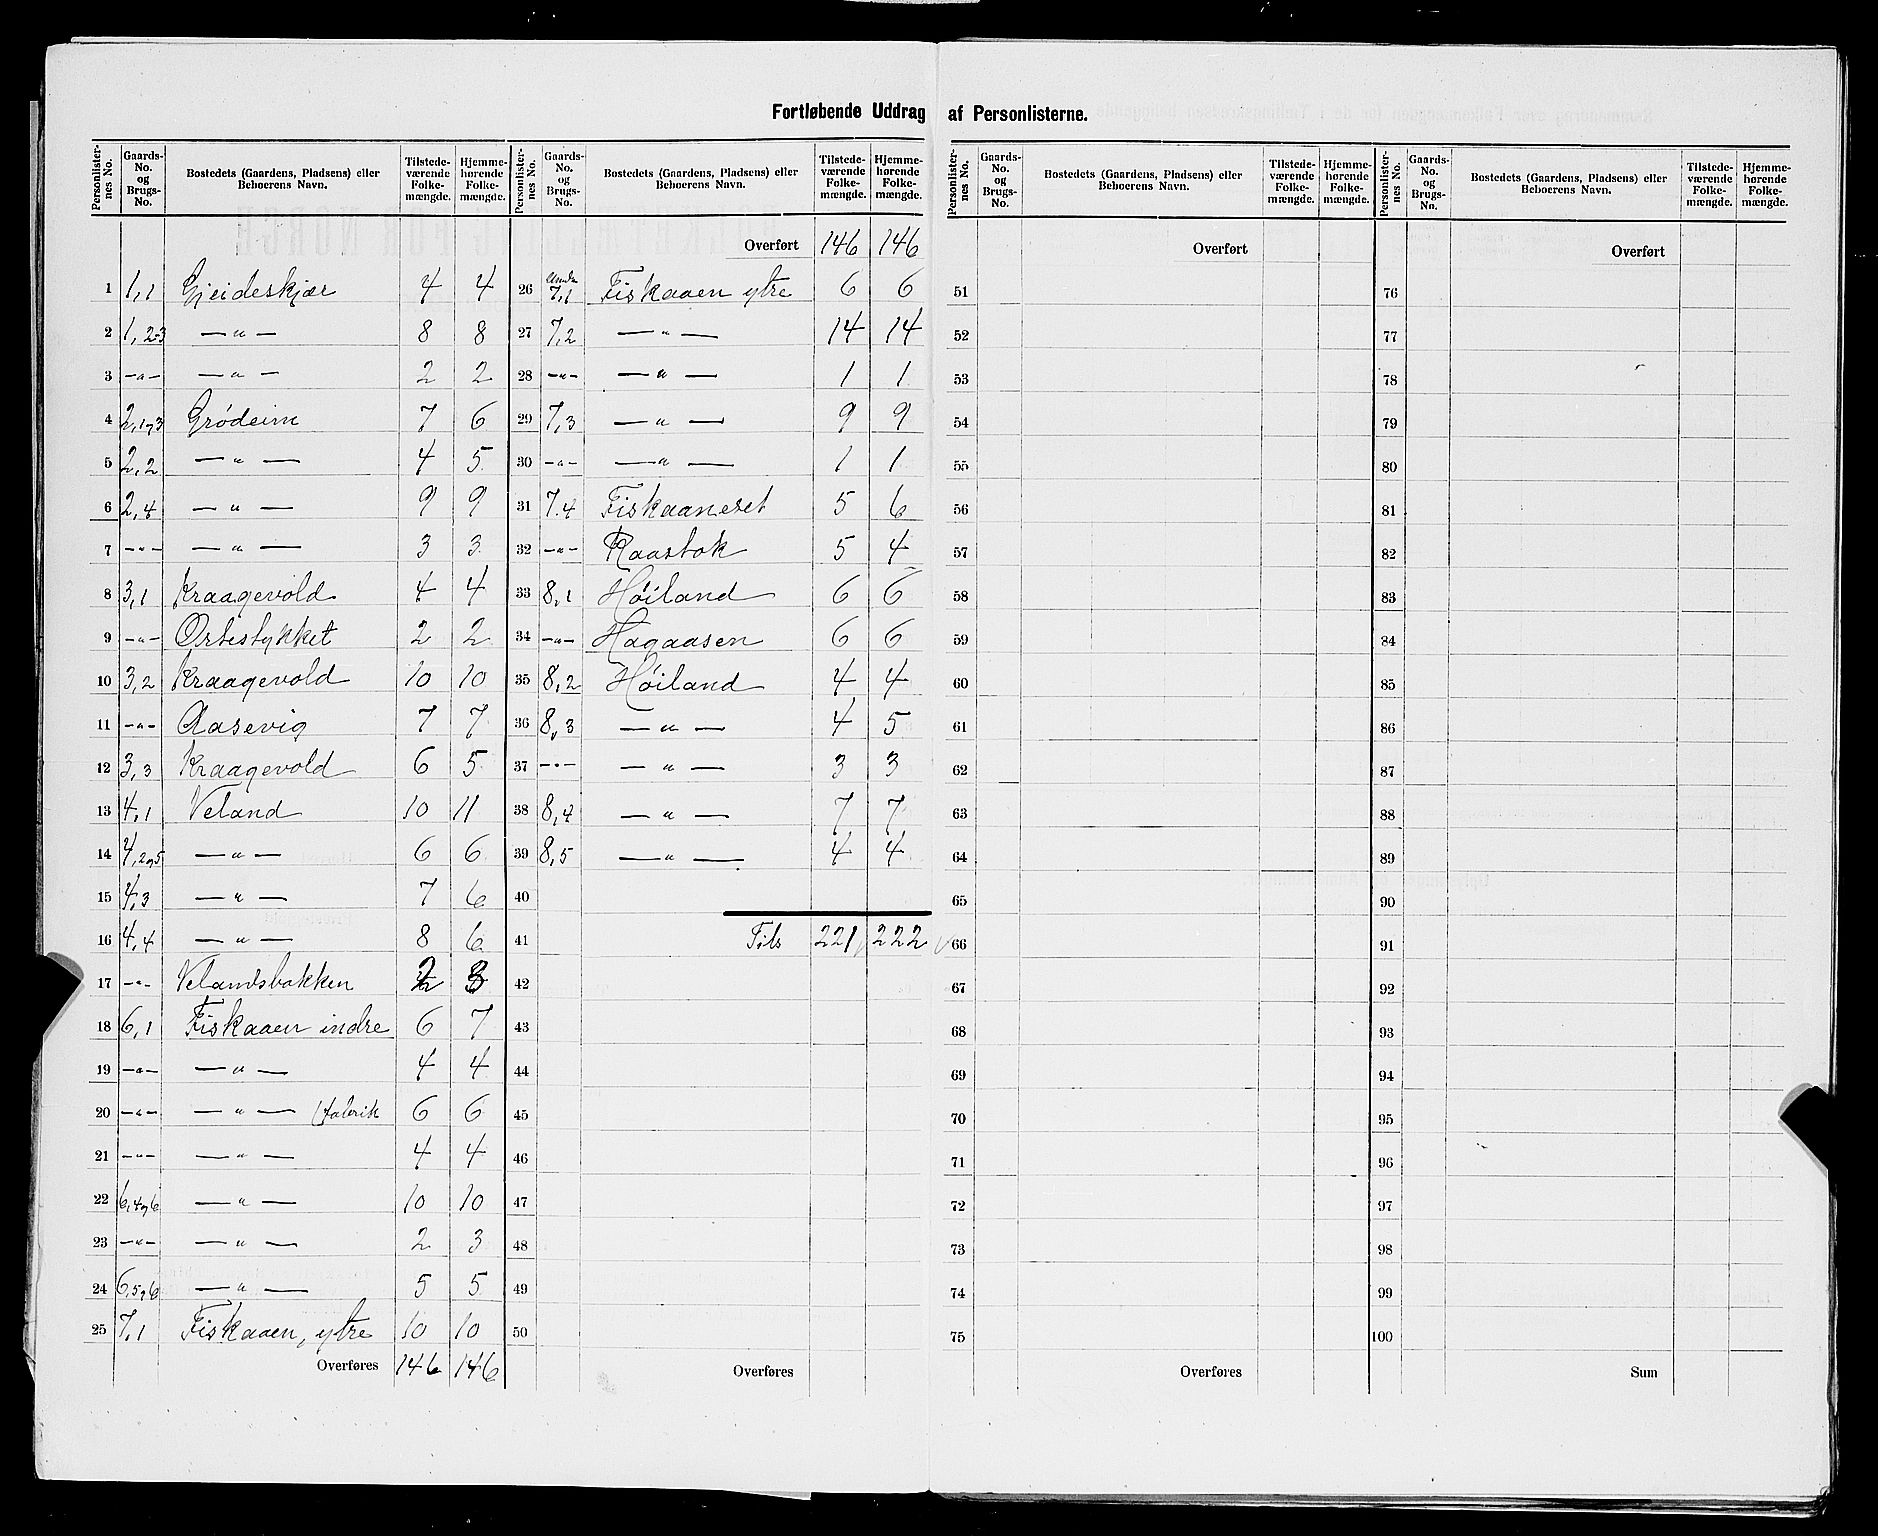 Fortløbende Uddrag af Personlisterne.
Personlisternes No. | Gaards-No. og Brugs-No. | Bostedets (Gaardens, Pladsens) eller Beboerens Navn. | Tilstedeværende Folkemængde. | Hjemmehørende Folkemængde.
1 | 1,1 | Gjeideskjær | 4 | 4
2 | 1,2-3 | — " — | 8 | 8
3 | — " — | — " — | 2 | 2
4 | 2,1og3 | Grødeim | 7 | 6
5 | 2,2 | — " — | 4 | 5
6 | 2,4 | — " — | 9 | 9
7 | — " — | — " — | 3 | 3
8 | 3,1 | Kraagevold | 4 | 4
9 | — " — | Orbestykket | 2 | 2
10 | 3,2 | Kraagevold | 10 | 10
11 | — " — | Aasevig | 7 | 7
12 | 3,3 | Kraagevold | 6 | 5
13 | 4,1 | Veland | 10 | 11
14 | 4,2og5 | — " — | 6 | 6
15 | 4,3 | — " — | 7 | 6
16 | 4,4 | — " — | 8 | 6
17 | — " — | Velandsbakken | 2 | 3
18 | 6,1 | Fiskaaen indre | 6 | 7
19 | — " — | — " — | 4 | 4
20 | — " — | — " — (fabrik | 6 | 6
21 | — " — | — " — | 4 | 4
22 | 6,4og6 | — " — | 10 | 10
23 | — " — | — " — | 2 | 3
24 | 6,5og6 | — " — | 5 | 5
25 | 7,1 | Fiskaaen, ytre | 10 | 10
Overføres | 146 | 146
Personlisternes No. | Gaards-No. og Brugs-No. | Bostedets (Gaardens, Pladsens) eller Beboerens Navn. | Tilstedeværende Folkemængde. | Hjemmehørende Folkemængde.
Overført | 146 | 146
26 | 7,1 | Fiskaaen ytre | 6 | 6
27 | 7,2 | — " — | 14 | 14
28 | — " — | — " — | 1 | 1
29 | 7,3 | — " — | 9 | 9
30 | — " — | — " — | 1 | 1
31 | 7.4 | Fiskaaneset | 5 | 6
32 | — " — | Raastok | 5 | 4
33 | 8,1 | Høiland | 6 | 6
34 | — " — | Hagaasen | 6 | 6
35 | 8,2 | Høiland | 4 | 4
36 | 8,3 | — " — | 4 | 5
37 | — " — | — " — | 3 | 3
38 | 8,4 | — " — | 7 | 7
39 | 8,5 | — " — | 4 | 4
40
41 | Tils | 221 | 222
42
43
44
45
46
47
48
49
50
Overføres
Personlisternes No. | Gaards-No. og Brugs-No. | Bostedets (Gaardens, Pladsens) eller Beboerens Navn. | Tilstedeværende Folkemængde. | Hjemmehørende Folkemængde.
Overført
51
52
53
54
55
56
57
58
59
60
61
62
63
64
65
66
67
68
69
70
71
72
73
74
75
Overføres
Personlisternes No. | Gaards-No. og Brugs-No. | Bostedets (Gaardens, Pladsens) eller Beboerens Navn. | Tilstedeværende Folkemængde. | Hjemmehørende Folkemængde.
Overført
76
77
78
79
80
81
82
83
84
85
86
87
88
89
90
91
92
93
94
95
96
97
98
99
100
Sum